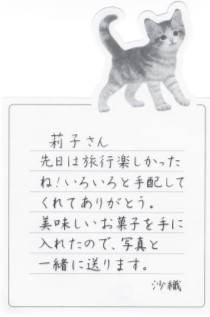 莉子さん
先日は旅行楽しかった
ね！いろいろと手配して
くれてありがとう。
美味しいお菓子を手に
入れたので、写真と
一緒に送ります。
沙織